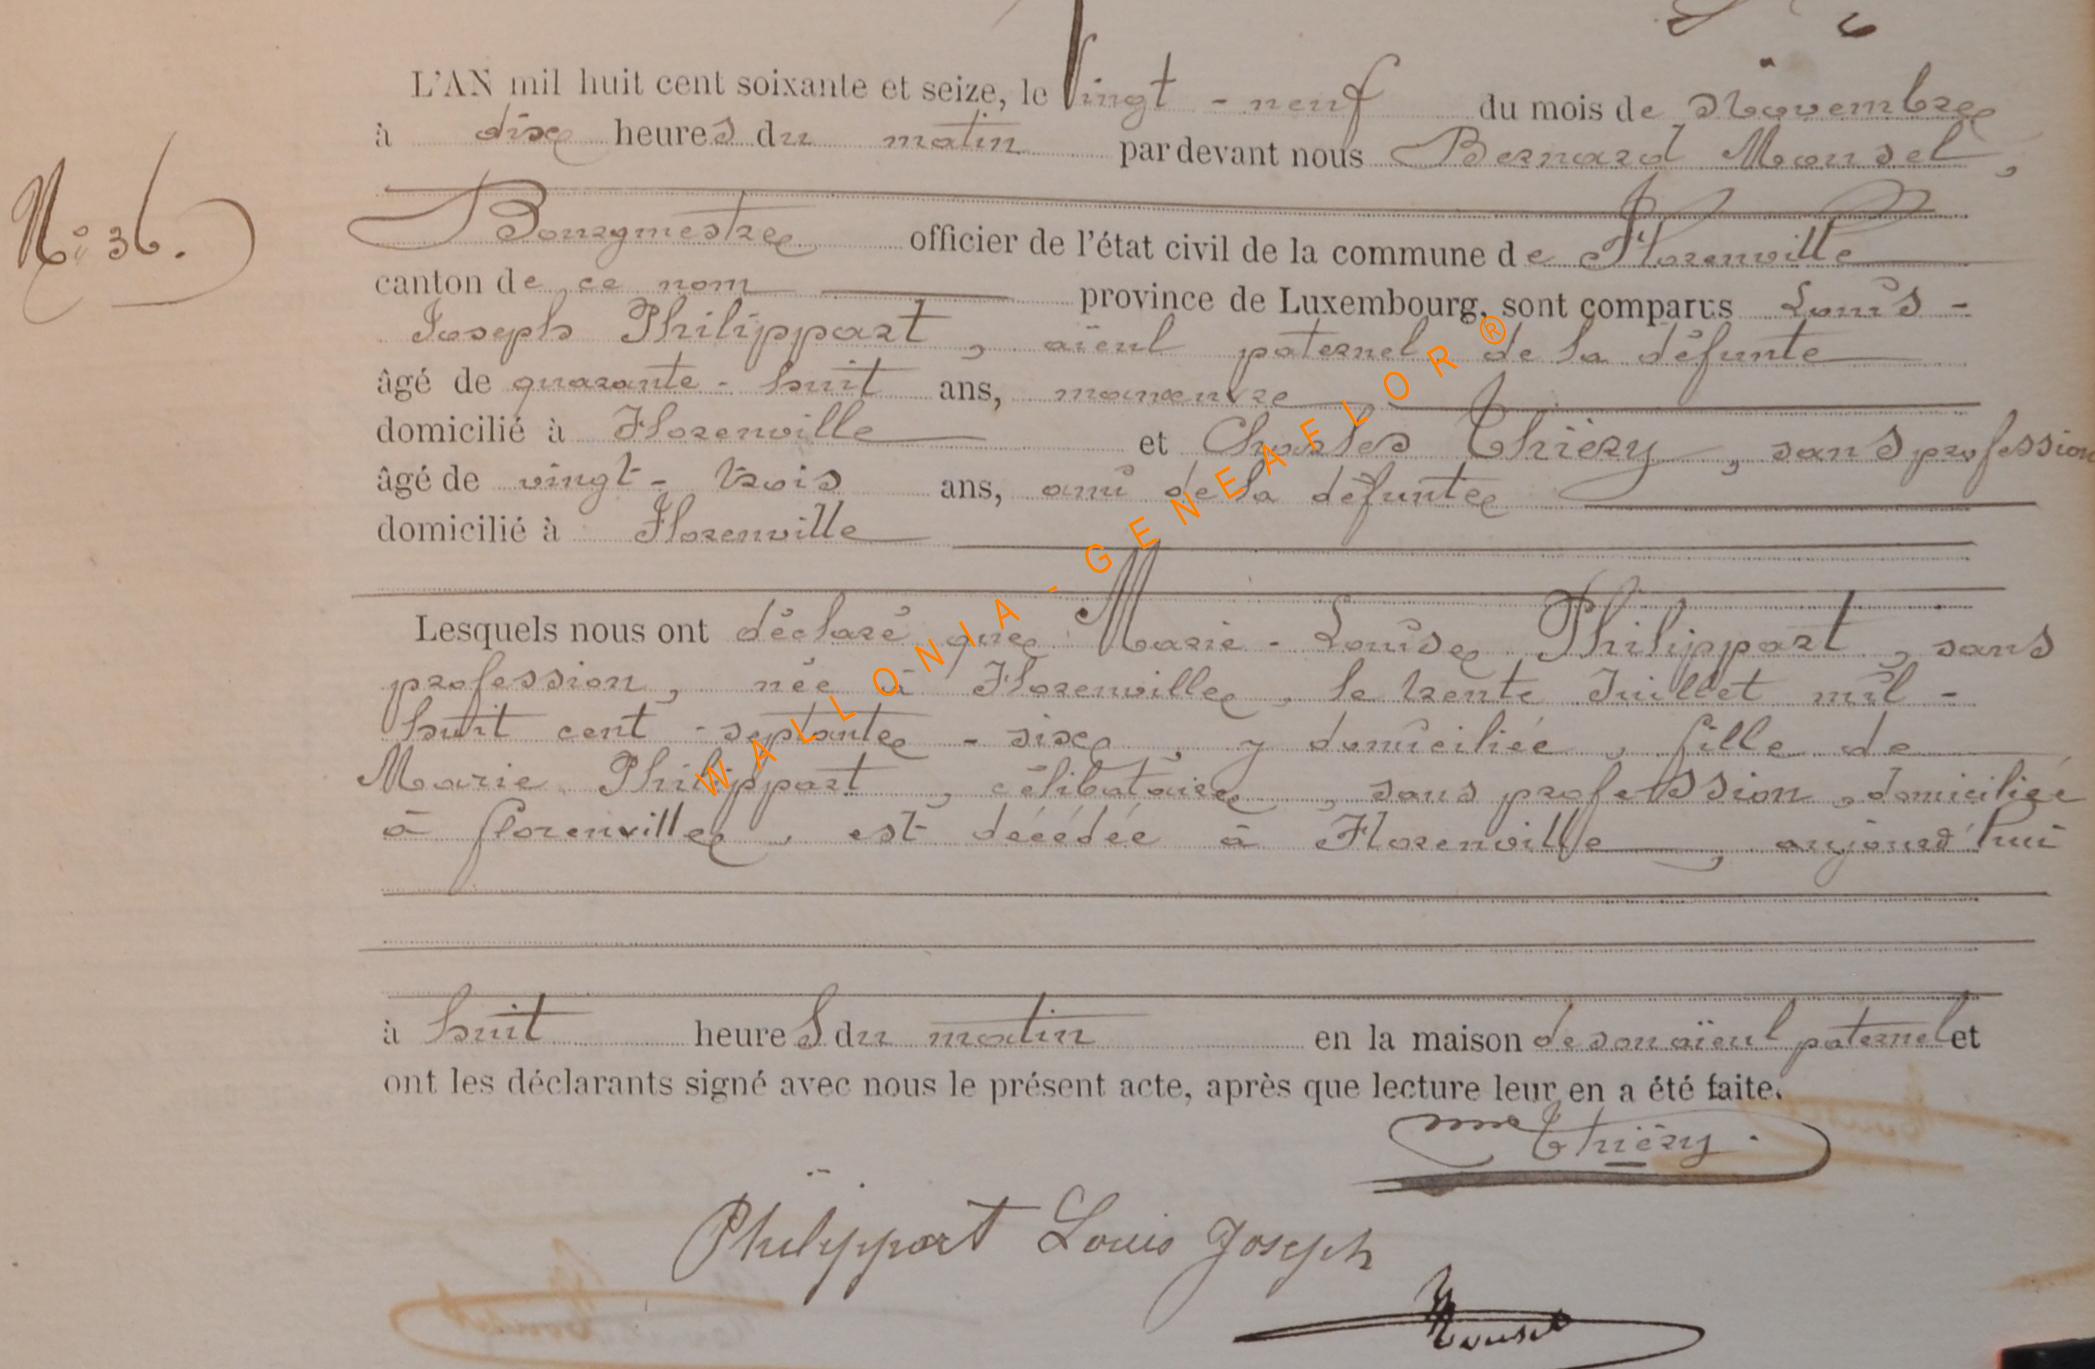 L'AN mil huit cent soixante et seize, le Vingt - neuf du mois de Novembre
à dix heures du matin par devant nous Bernard Mousel,
N° 36.
Bourgmestre officier de l'état civil de la commune de Florenville
canton de ce nom province de Luxembourg, sont comparus Louis -
Joseph Philippart, aïeul paternel de la défunte
âgé de quarante - huit ans, manœuvre
domicilié à Florenville et Charles Thiéry, sans profession
âgé de vingt - trois ans, ami de la défunte
domicilié à Florenville
Lesquels nous ont déclaré que Marie - Louise Philippart, sans
profession, née à Florenville, le trente Juillet mil -
huit cent - septante - six, y domiciliée, fille de
Marie Philippart, célibataire, sans profession, domiciliée
à florenville, est décédée à Florenville, aujourd'hui
à huit heures du matin en la maison de son aïeul paternel et
ont les déclarants signé avec nous le présent acte, après que lecture leur en a été faite.
Thiéry.
Philippart Louis Joseph
Mousel
WALLONIA - GENEAFLOR ®